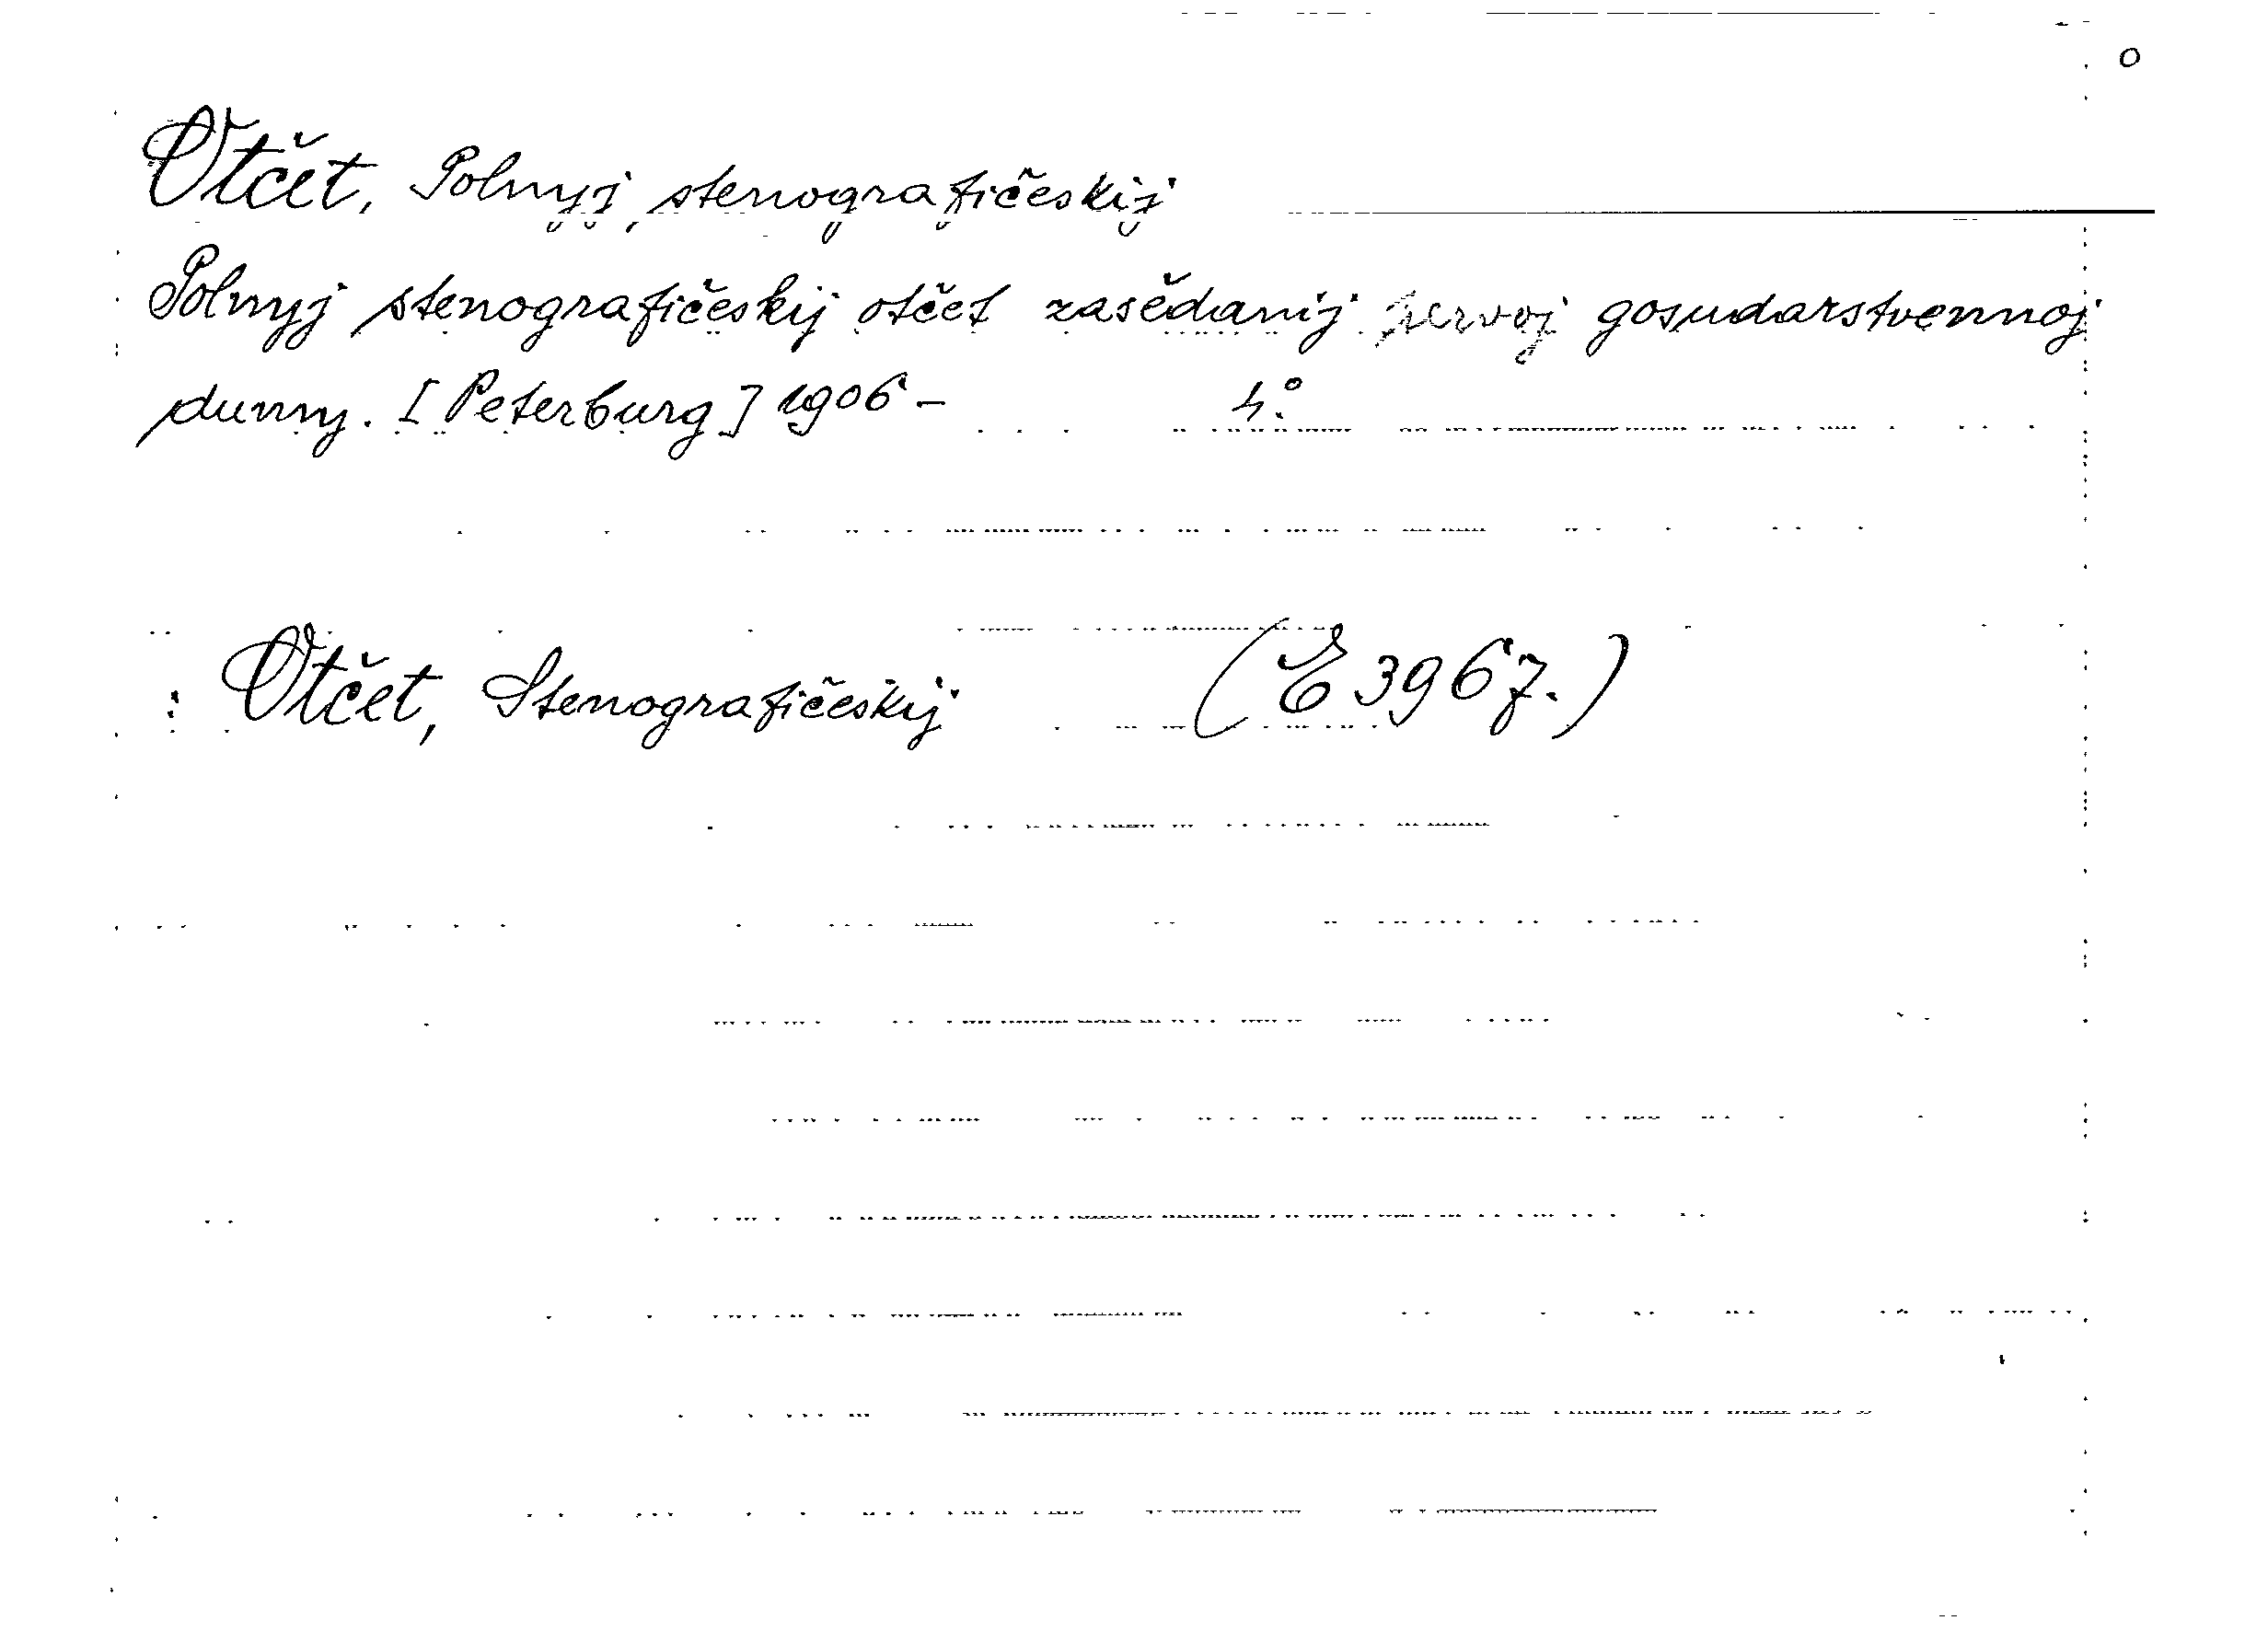 O
Otčet, Polnyj stenografičeskij
Polnyj stenografičeskij otčet zasědanij pervoj gosudarstvennoj
dumy. [Peterburg] 1906- 4:o
: Otčet, Stenografičeskij (E 3967.)